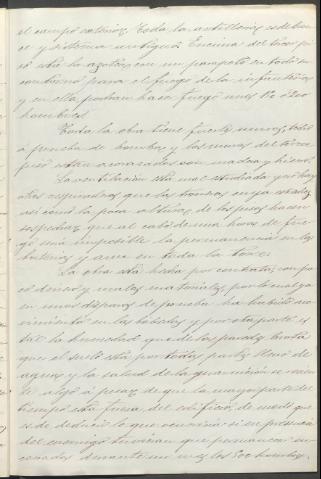 el campo exterior. Toda la artillería es de bronce
y sistema antiguo. Encima del tercer pi-
so está la azotea, con un parapeto en todo su
contorno para el fuego de la infantería
y en ella podrían hacer fuego unos 150 o 200
hombres.
Toda la obra tiene fuertes muros, todo
a prueba de bomba y los muros del tercer
piso están acorazados con madera y hierro.
La ventilación está mal estudiada pues hay
altos respiraderos que las bombas
así como la poca altura de los pisos hacen
sospechar que al cabo de una hora de fue-
go será imposible la permanencia en las
baterías y aun en toda la torre.
La obra está hecha por contrata, con po-
co dinero y malos materiales, por lo cual ya
en unos disparos de prueba ha habido mo-
vimiento en las bóvedas y por otra parte es
tal la humedad que de las paredes brota
que el suelo está por todas partes lleno de
agua y la salud de la guarnición se resien-
te algo á pesar de que la mayor parte del
tiempo está fuera del edificio, de modo que
es de deducir lo que ocurriría si en presencia
del enemigo tuvieran que permanecer en-
cerrados durante un mes los 500 hombres.